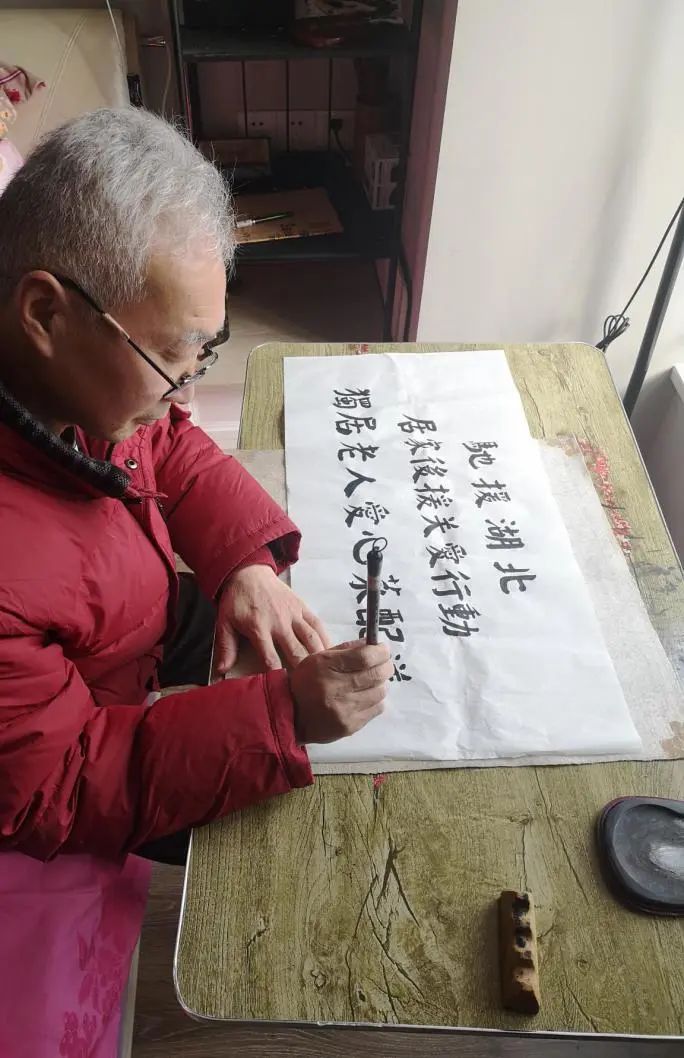 馳援湖北
居家後援关愛行動
獨居老人愛心菜配